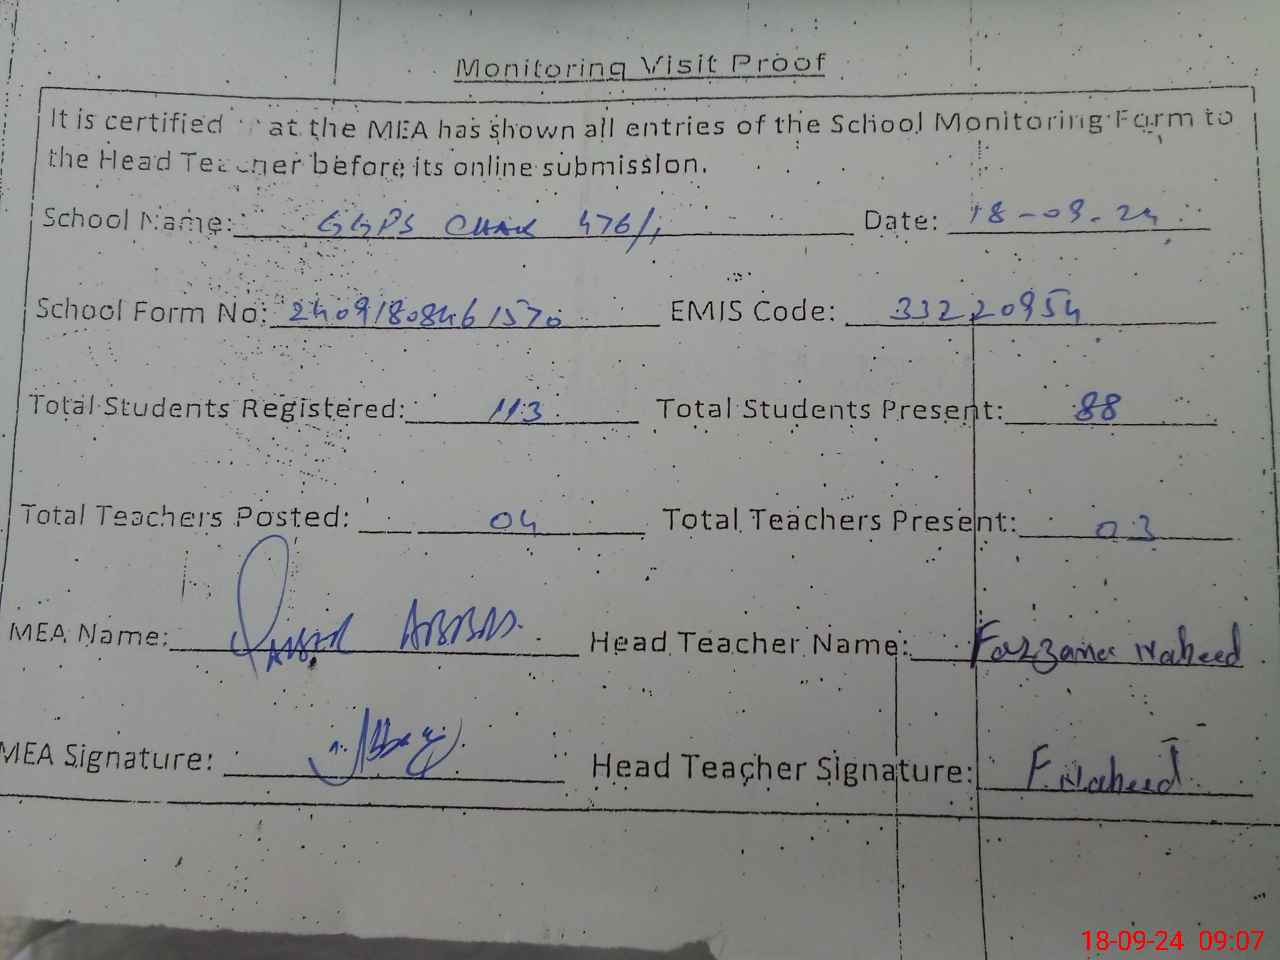 Monitoring Visit Proof
It is certified at the MEA has shown all entries of the School Monitoring Form to
the Head Teacher before its online submission.
School Name: GGPS CHAK 476/1 Date: 18-09-24
School Form No: 24091808461570 EMIS Code: 33220954
Total Students Registered: 113 Total Students Present: 88
Total Teachers Posted: 04 Total Teachers Present: 03
MEA Name: ABBAS Head Teacher Name: Farzana Naheed
MEA Signature: Head Teacher Signature: F. Naheed
18-09-24 09:07